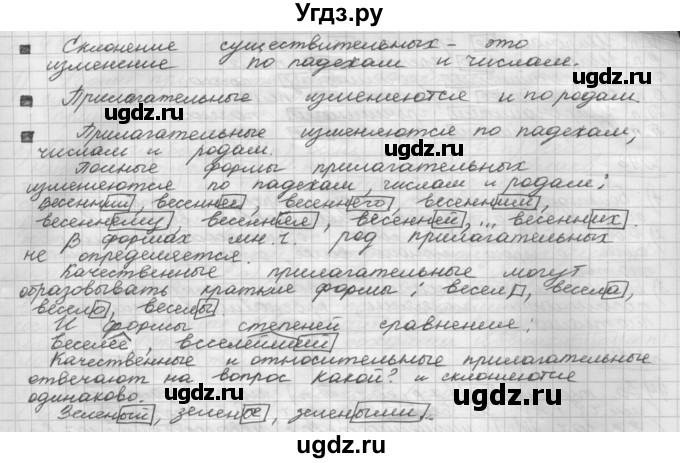 Угдз.ру
Склонение существительных - это
изменение по падежам и числам.
Прилагательные изменяются и по родам.
Прилагательные изменяются по падежам,
числам и родам.
Полные формы прилагательных
изменяются по падежам, числам и родам:
весенний, весенней, весеннего, весенним,
весеннему, весенняя, весенней, ... весенних.
В формах мн.ч. род прилагательных
не определяется.
Качественные прилагательные могут
образовывать краткие формы: весел, весела,
весело, веселы
И формы степеней сравнения:
веселее, веселейший
Качественные и относительные прилагательные
отвечают на вопрос какой? и склоняются
одинаково.
Зеленый, зеленое, зелеными.
uгдz.ru
uгдz.ru
uгдz.ru
uгдz.ru
uгдz.ru
uгдz.ru
uгдz.ru
uгдz.ru
uгдz.ru